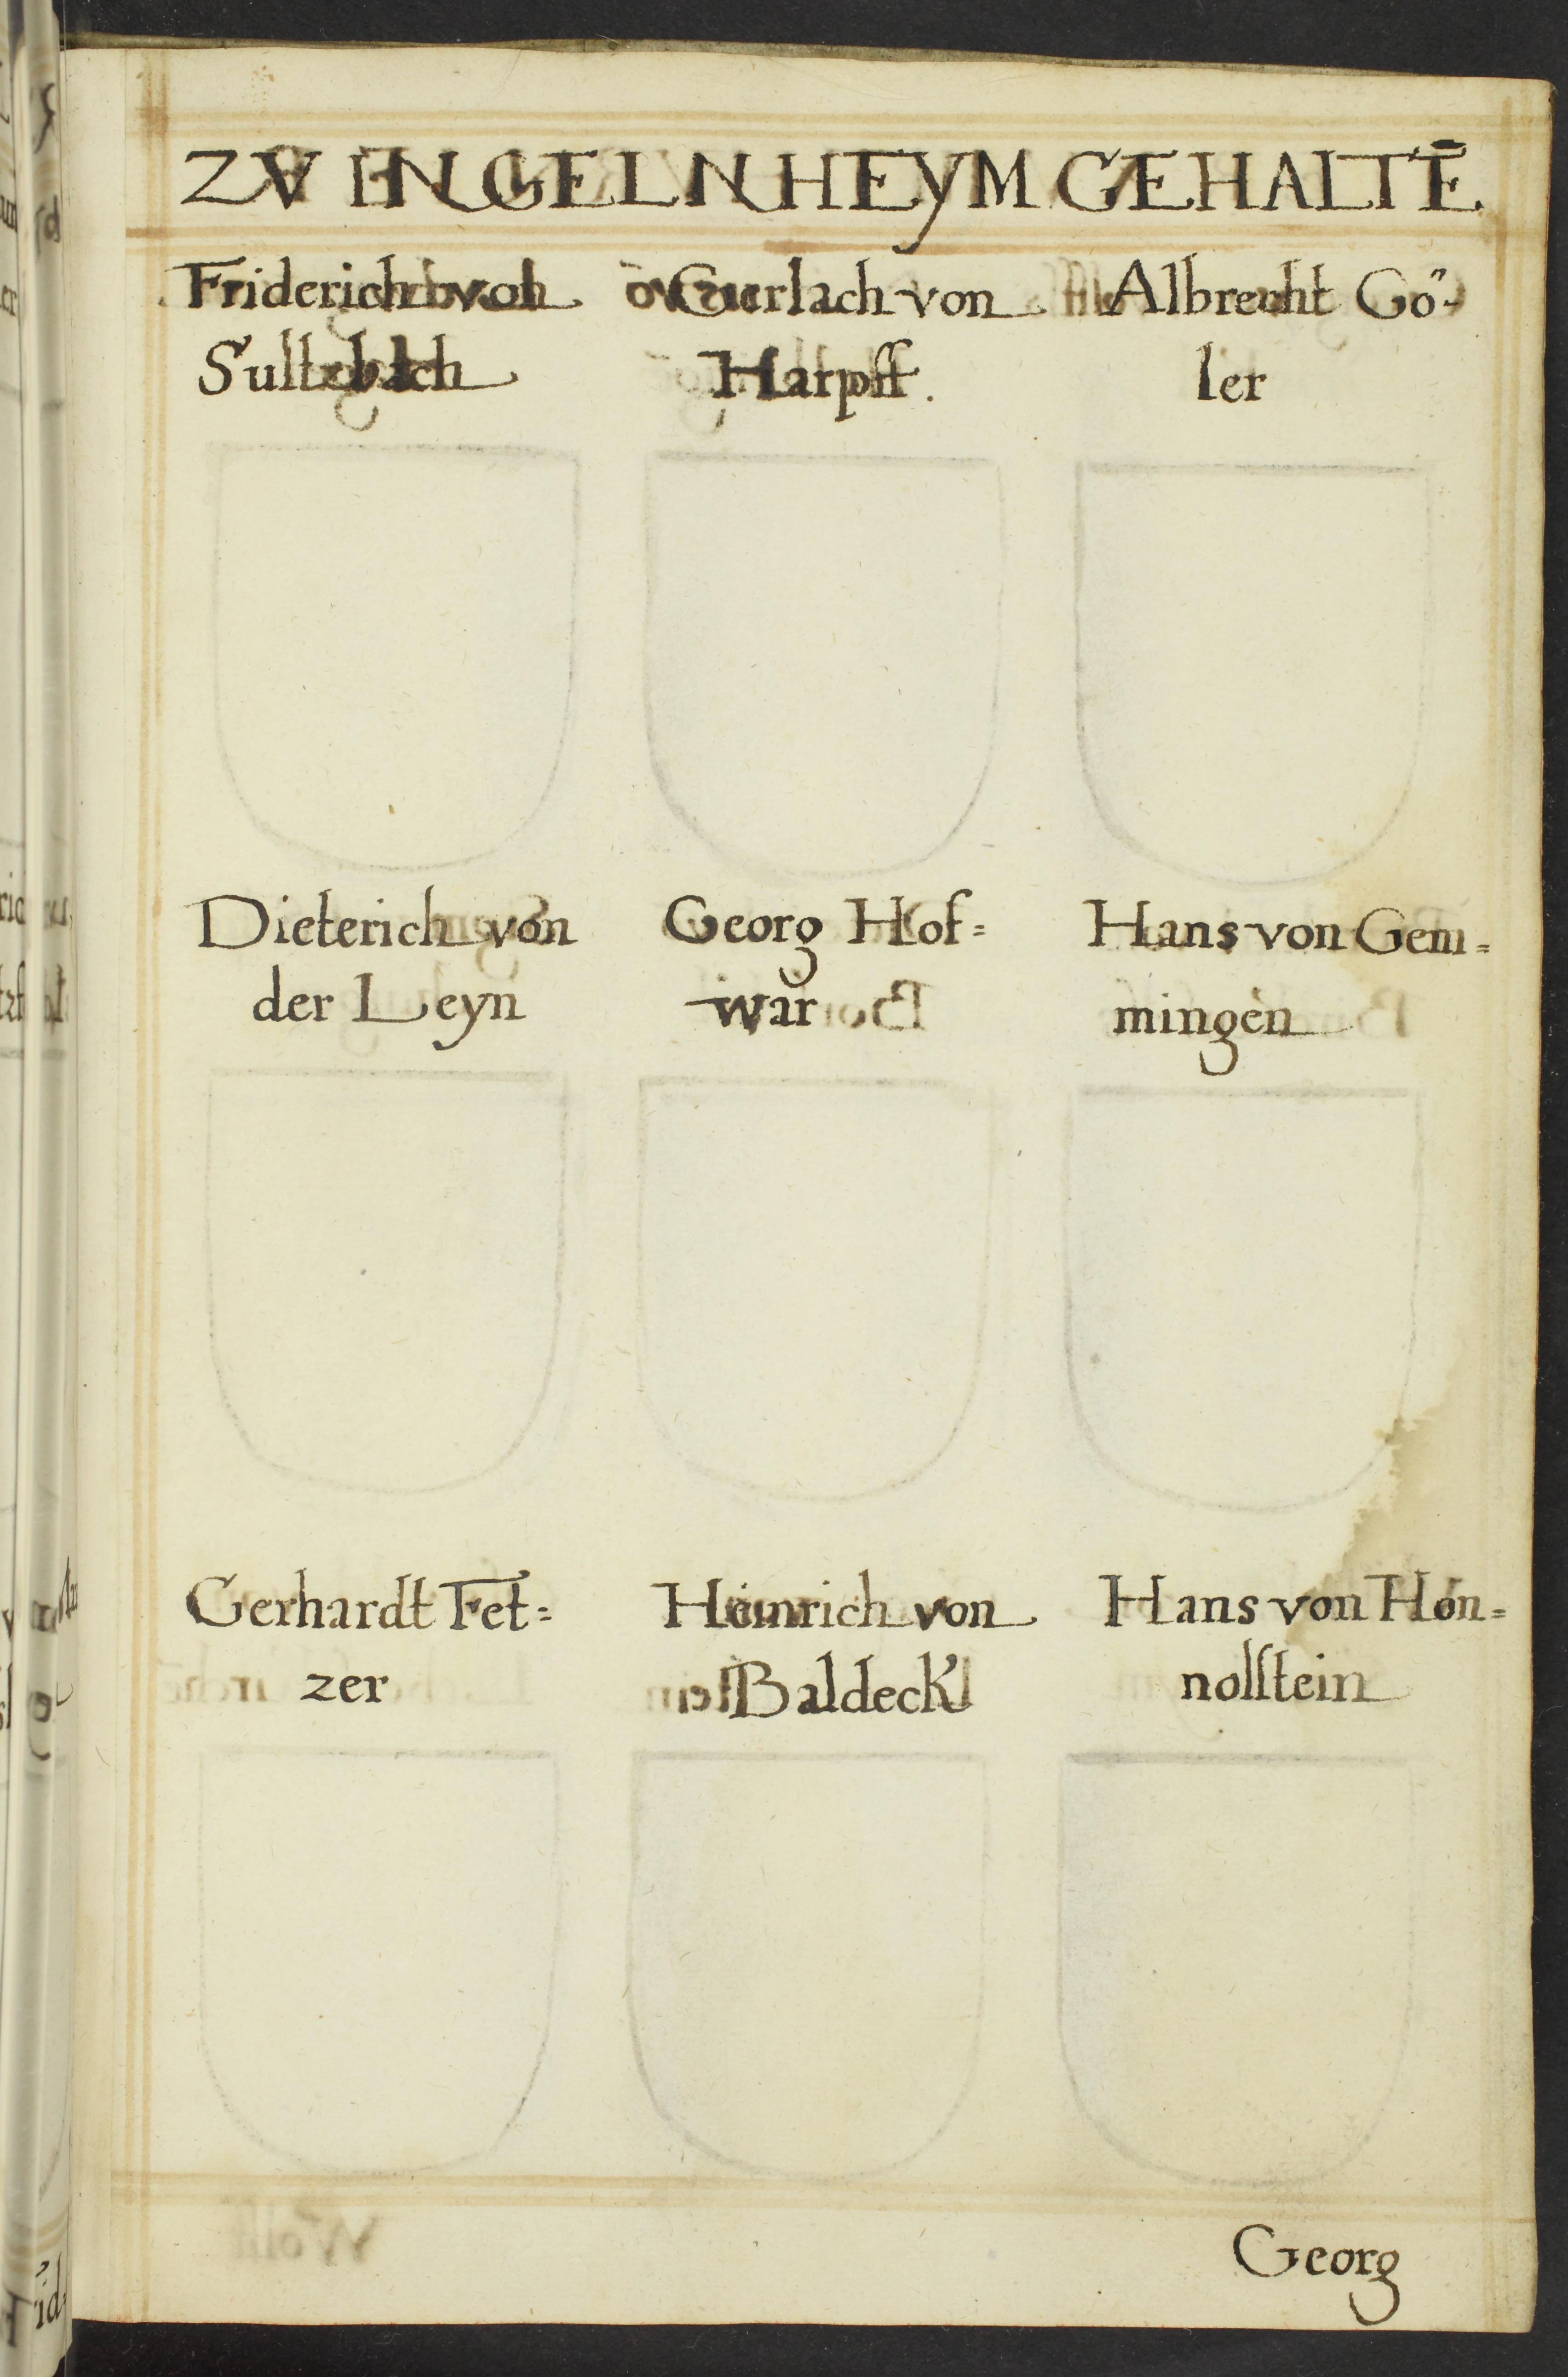 ZV INGELNHEYM GEHALTĒ
Friderich von
Sultzbach
Gerlach von
Harpff.
Albrecht Gö-
ler
Dieterich von
der Leyn
Georg Hof=
war
Hans von Gem=
mingen
Gerhardt Fet=
zer
Heinrich von
Baldeck
Hans von Hon=
nolſtein
Georg